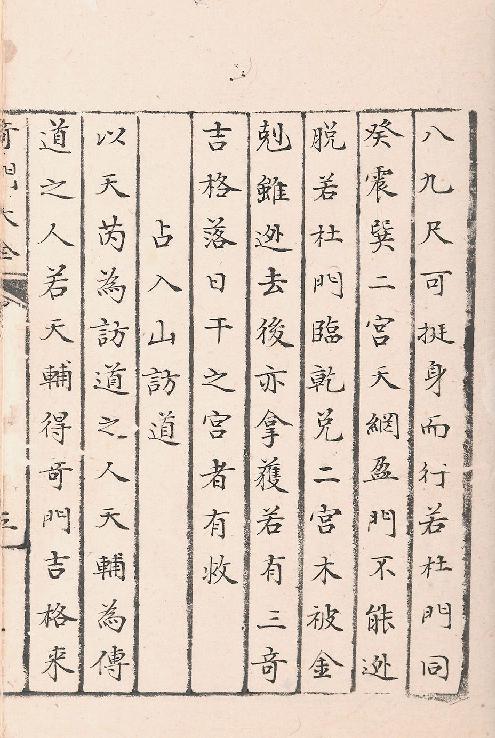 八九尺可挺身而行若杜門同
癸震巽二宮天網盈門不能迯
脱若杜門臨乾兑二宮木被金
剋雖迯去後亦拿獲若有三奇
吉格落日干之宮者有救
占入山訪道
以天芮為訪道之人天輔為傳
道之人若天輔得奇門吉格来
奇門大全